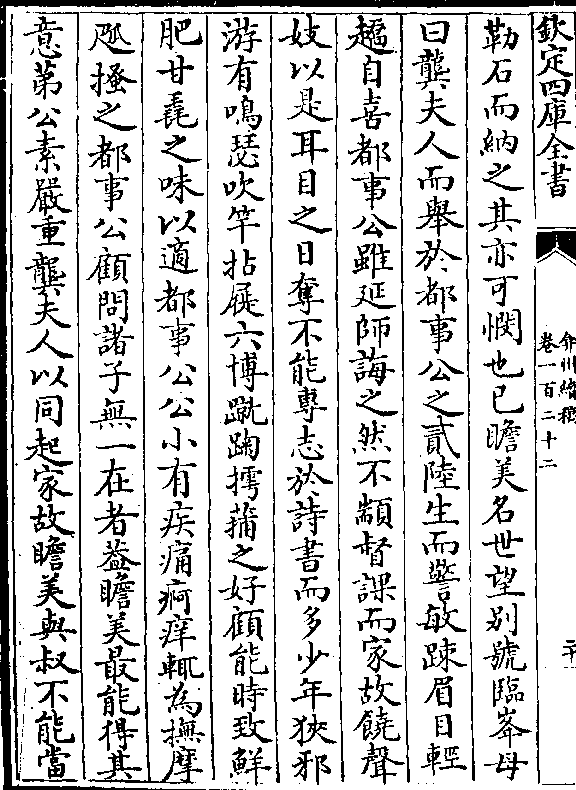 欽定四庫全書
弇州續稿
卷一百二十二
二十
勒石而納之其亦可憫也已瞻美名世望别號臨峯母
曰龔夫人而舉於都事公之貳陸生而警敏踈眉目輕
趫自喜都事公雖延師誨之然不顓督課而家故饒聲
妓以是耳目之日奪不能專志於詩書而多少年狹邪
游有鳴瑟吹竽跕屣六博蹴踘摴蒱之好顧能時致鮮
肥甘毳之味以適都事公公小有疾痛疴痒輒為撫摩
爬搔之都事公顧問諸子無一在者葢瞻美最能得其
意第公素嚴重龔夫人以同起家故瞻美與叔不能當